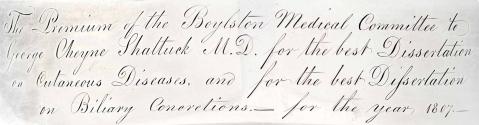 The Premium of the Boylston Medical Committee to
George Cheyne Shattuck M.D. for the best Dissertation
on Cutaneous Diseases, and for the best Dissertation
on Biliary Concretions.— for the year, 1807.—